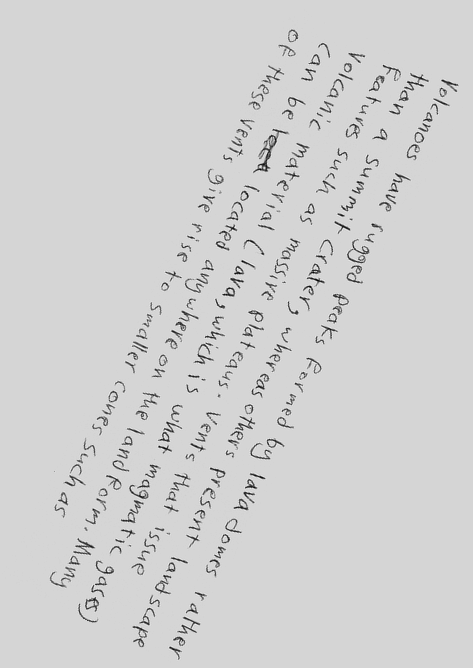 Volcanoes have rugged peaks formed by lava domes rather
than a summit crater, whereas others present landscape
Features such as massive plateaus. Vents that issue
Volcanic material (lava, which is what magmatic gases)
can be located anywhere on the landform. Many
of these vents give rise to smaller cones such as